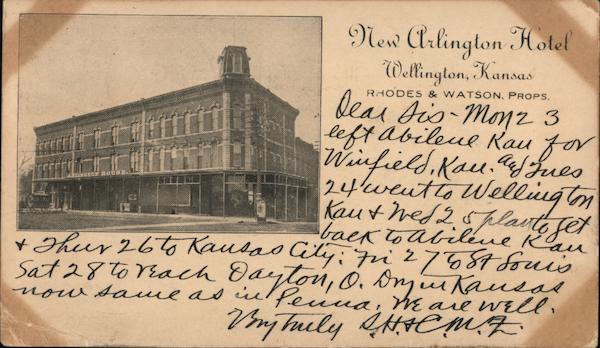 New Arlington Hotel
Wellington, Kansas
RHODES & WATSON, PROPS.
Dear Sis- Mon 23
left Abilene Kan for
Winfield, Kan. and Tues
24 went to Wellington
Kan & Wed 25 plan to get
back to Abilene Kan
& Thur 26 to Kansas City: Fri 27 to St Louis
Sat 28 to reach Dayton, O. Dry in Kansas
now same as in Penna. We are well.
Very truly S.H. & C.M.Z.